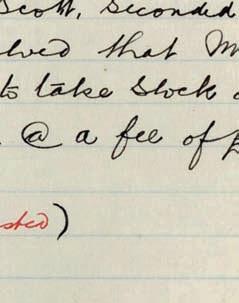 Scott, Seconded
lved that M
to take Stock
@ a fee of £
sted)